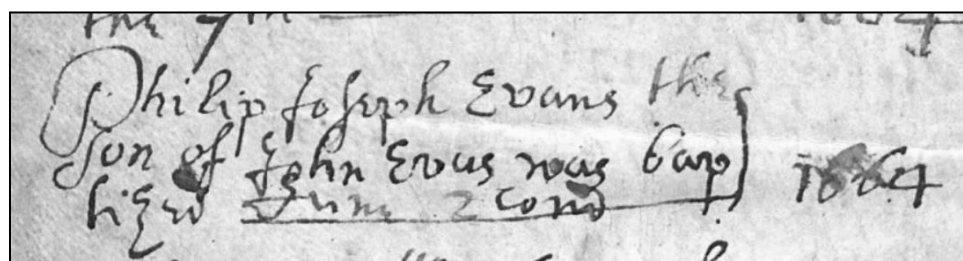 the 7th 1664
Philip Joseph Evans the
son of John Evas was bap
tized June 2cond 1664